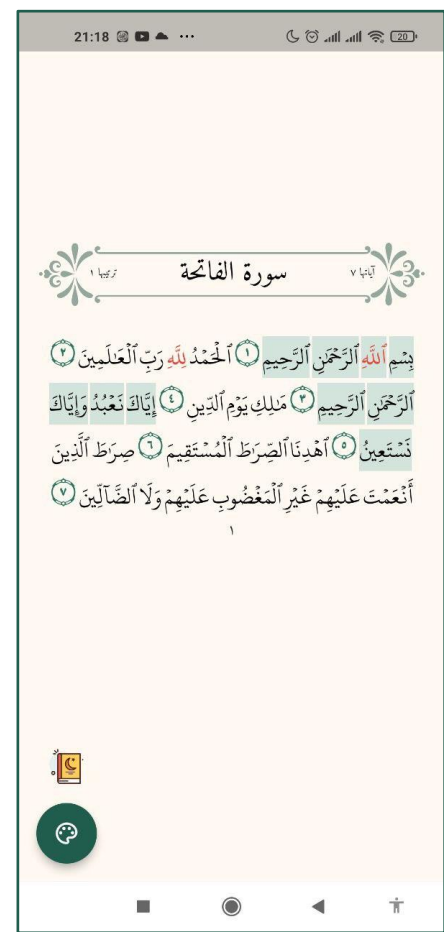 21:18 ... 20
ترتيبها ١ سورة الفاتحة آياتها ٧
بِسۡمِ ٱللَّهِ ٱلرَّحۡمَٰنِ ٱلرَّحِيمِ ١ ٱلۡحَمۡدُ لِلَّهِ رَبِّ ٱلۡعَٰلَمِينَ ٢
ٱلرَّحۡمَٰنِ ٱلرَّحِيمِ ٣ مَٰلِكِ يَوۡمِ ٱلدِّينِ ٤ إِيَّاكَ نَعۡبُدُ وَإِيَّاكَ
نَسۡتَعِينُ ٥ ٱهۡدِنَا ٱلصِّرَٰطَ ٱلۡمُسۡتَقِيمَ ٦ صِرَٰطَ ٱلَّذِينَ
أَنۡعَمۡتَ عَلَيۡهِمۡ غَيۡرِ ٱلۡمَغۡضُوبِ عَلَيۡهِمۡ وَلَا ٱلضَّآلِّينَ ٧
١